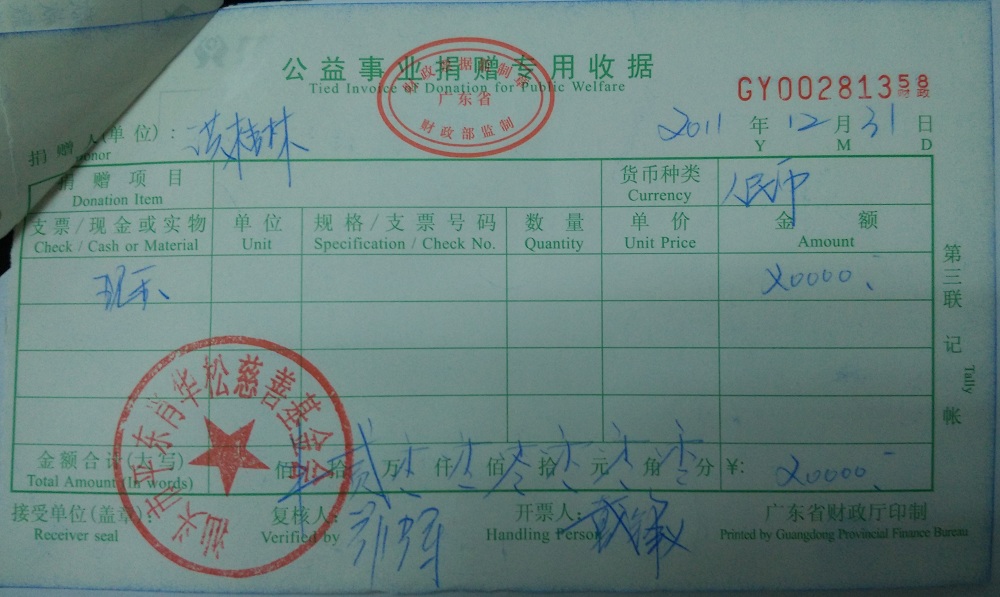 公益事业捐赠专用收据
Tied Invoice of Donation for Public Welfare
广东省
财政部监制
GY00281358
财政
捐赠人(单位):
Donor
2011 年 12 月 31 日
Y M D
捐赠项目
Donation Item
货币种类
Currency
人民币
支票/现金或实物 单位 规格/支票号码 数量 单价 金额
Check / Cash or Material Unit Specification / Check No. Quantity Unit Price Amount
现金 20000
第三联 记帐
Tally
汕头市 东肖华松慈善基金会
金额合计(大写) 佰 拾 贰 万 仟 佰 拾 元 角 分 ¥: 20000
Total Amount (In words)
接受单位(盖章): 复核人: 开票人: 广东省财政厅印制
Receiver seal Verified by Handling Person Printed by Guangdong Provincial Finance Bureau